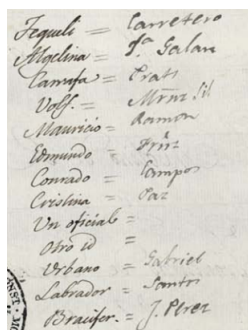 Fequeli = Carretero
Adelina = Sª Galan
Carrafa = Prats
Volf. = Mrnz Gil
Mauricio = Ramon
Edmundo =
Conrado = Campos
Cristina = Paz
Un oficial =
Otro id =
Urbano = Gabriel
Labrador = Santos
Bracifor. = J. Perez